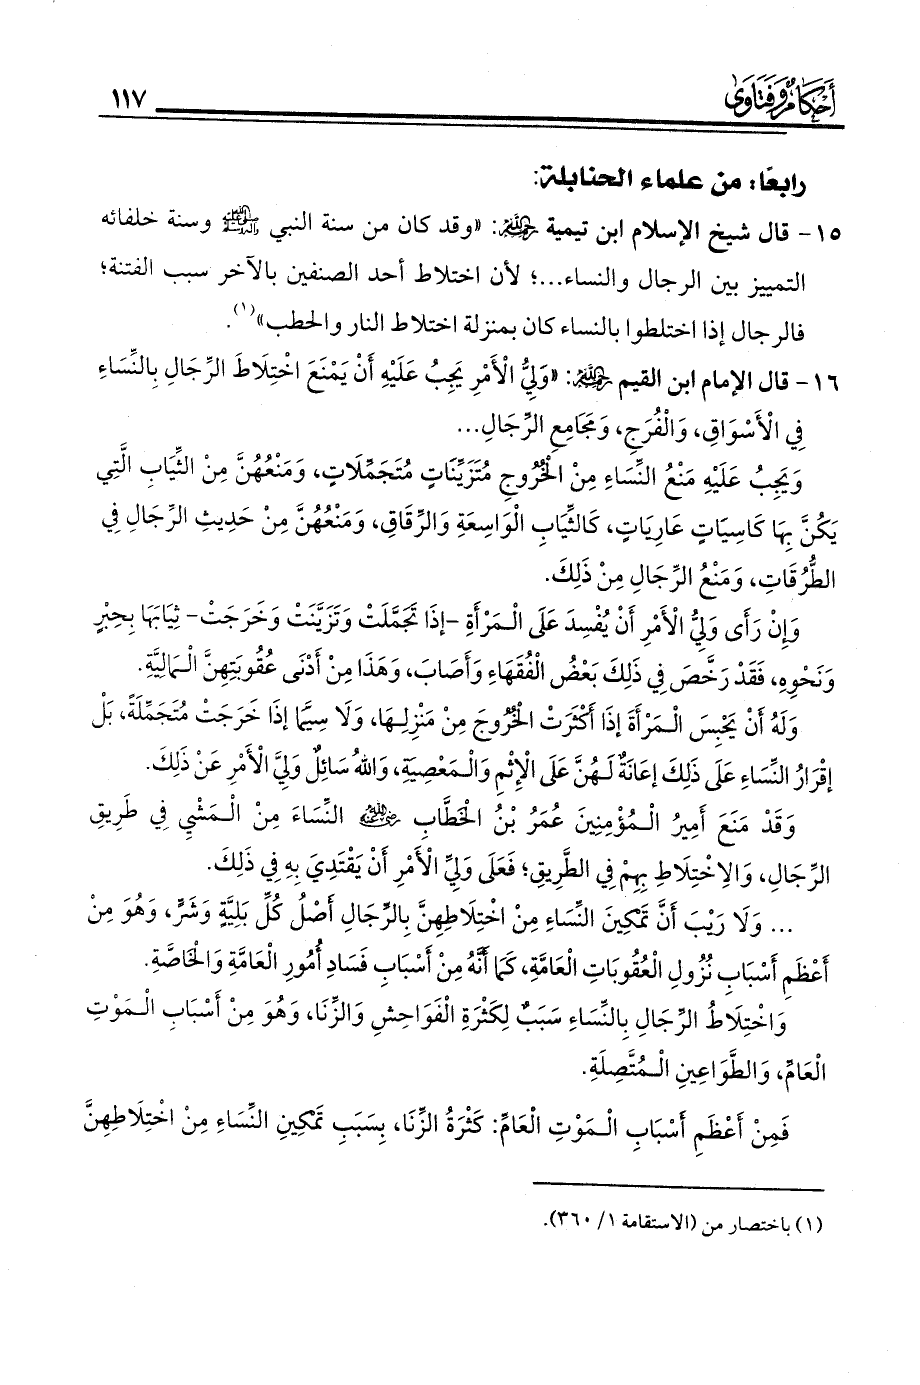 أحكام وفتاوى ١١٧
رابعًا: من علماء الحنابلة:
١٥- قال شيخ الإسلام ابن تيمية رحمه الله: «وقد كان من سنة النبي ﷺ وسنة خلفائه
التمييز بين الرجال والنساء...؛ لأن اختلاط أحد الصنفين بالآخر سبب الفتنة؛
فالرجال إذا اختلطوا بالنساء كان بمنزلة اختلاط النار والحطب»(١).
١٦- قال الإمام ابن القيم رحمه الله: «وَلِيُّ الْأَمْرِ يَجِبُ عَلَيْهِ أَنْ يَمْنَعَ اخْتِلَاطَ الرِّجَالِ بِالنِّسَاءِ
فِي الْأَسْوَاقِ، وَالْفُرَجِ، وَمَجَامِعِ الرِّجَالِ...
وَيَجِبُ عَلَيْهِ مَنْعُ النِّسَاءِ مِنْ الْخُرُوجِ مُتَزَيِّنَاتٍ مُتَجَمِّلَاتٍ، وَمَنْعُهُنَّ مِنْ الثِّيَابِ الَّتِي
يَكُنَّ بِهَا كَاسِيَاتٍ عَارِيَاتٍ، كَالثِّيَابِ الْوَاسِعَةِ وَالرِّقَاقِ، وَمَنْعُهُنَّ مِنْ حَدِيثِ الرِّجَالِ فِي
الطُّرُقَاتِ، وَمَنْعُ الرِّجَالِ مِنْ ذَلِكَ.
وَإِنْ رَأَى وَلِيُّ الْأَمْرِ أَنْ يُفْسِدَ عَلَى الْمَرْأَةِ -إِذَا تَجَمَّلَتْ وَتَزَيَّنَتْ وَخَرَجَتْ- ثِيَابَهَا بِحِبْرٍ
وَنَحْوِهِ، فَقَدْ رَخَّصَ فِي ذَلِكَ بَعْضُ الْفُقَهَاءِ وَأَصَابَ، وَهَذَا مِنْ أَدْنَى عُقُوبَتِهِنَّ الْمَالِيَّةِ.
وَلَهُ أَنْ يَحْبِسَ الْمَرْأَةَ إِذَا أَكْثَرَتْ الْخُرُوجَ مِنْ مَنْزِلِهَا، وَلَا سِيَّمَا إِذَا خَرَجَتْ مُتَجَمِّلَةً، بَلْ
إِقْرَارُ النِّسَاءِ عَلَى ذَلِكَ إِعَانَةٌ لَهُنَّ عَلَى الْإِثْمِ وَالْمَعْصِيَةِ، وَاللهُ سَائِلٌ وَلِيَّ الْأَمْرِ عَنْ ذَلِكَ.
وَقَدْ مَنَعَ أَمِيرُ الْمُؤْمِنِينَ عُمَرُ بْنُ الْخَطَّابِ رضي الله عنه النِّسَاءَ مِنْ الْمَشْيِ فِي طَرِيقِ
الرِّجَالِ، وَالِاخْتِلَاطِ بِهِمْ فِي الطَّرِيقِ؛ فَعَلَى وَلِيِّ الْأَمْرِ أَنْ يَقْتَدِيَ بِهِ فِي ذَلِكَ.
... وَلَا رَيْبَ أَنَّ تَمْكِينَ النِّسَاءِ مِنْ اخْتِلَاطِهِنَّ بِالرِّجَالِ أَصْلُ كُلِّ بَلِيَّةٍ وَشَرٍّ، وَهُوَ مِنْ
أَعْظَمِ أَسْبَابِ نُزُولِ الْعُقُوبَاتِ الْعَامَّةِ، كَمَا أَنَّهُ مِنْ أَسْبَابِ فَسَادِ أُمُورِ الْعَامَّةِ وَالْخَاصَّةِ.
وَاخْتِلَاطُ الرِّجَالِ بِالنِّسَاءِ سَبَبٌ لِكَثْرَةِ الْفَوَاحِشِ وَالزِّنَا، وَهُوَ مِنْ أَسْبَابِ الْمَوْتِ
الْعَامِّ، وَالطَّوَاعِينِ الْمُتَّصِلَةِ.
فَمِنْ أَعْظَمِ أَسْبَابِ الْمَوْتِ الْعَامِّ: كَثْرَةُ الزِّنَا، بِسَبَبِ تَمْكِينِ النِّسَاءِ مِنْ اخْتِلَاطِهِنَّ
(١) باختصار من (الاستقامة ١/ ٣٦٠).